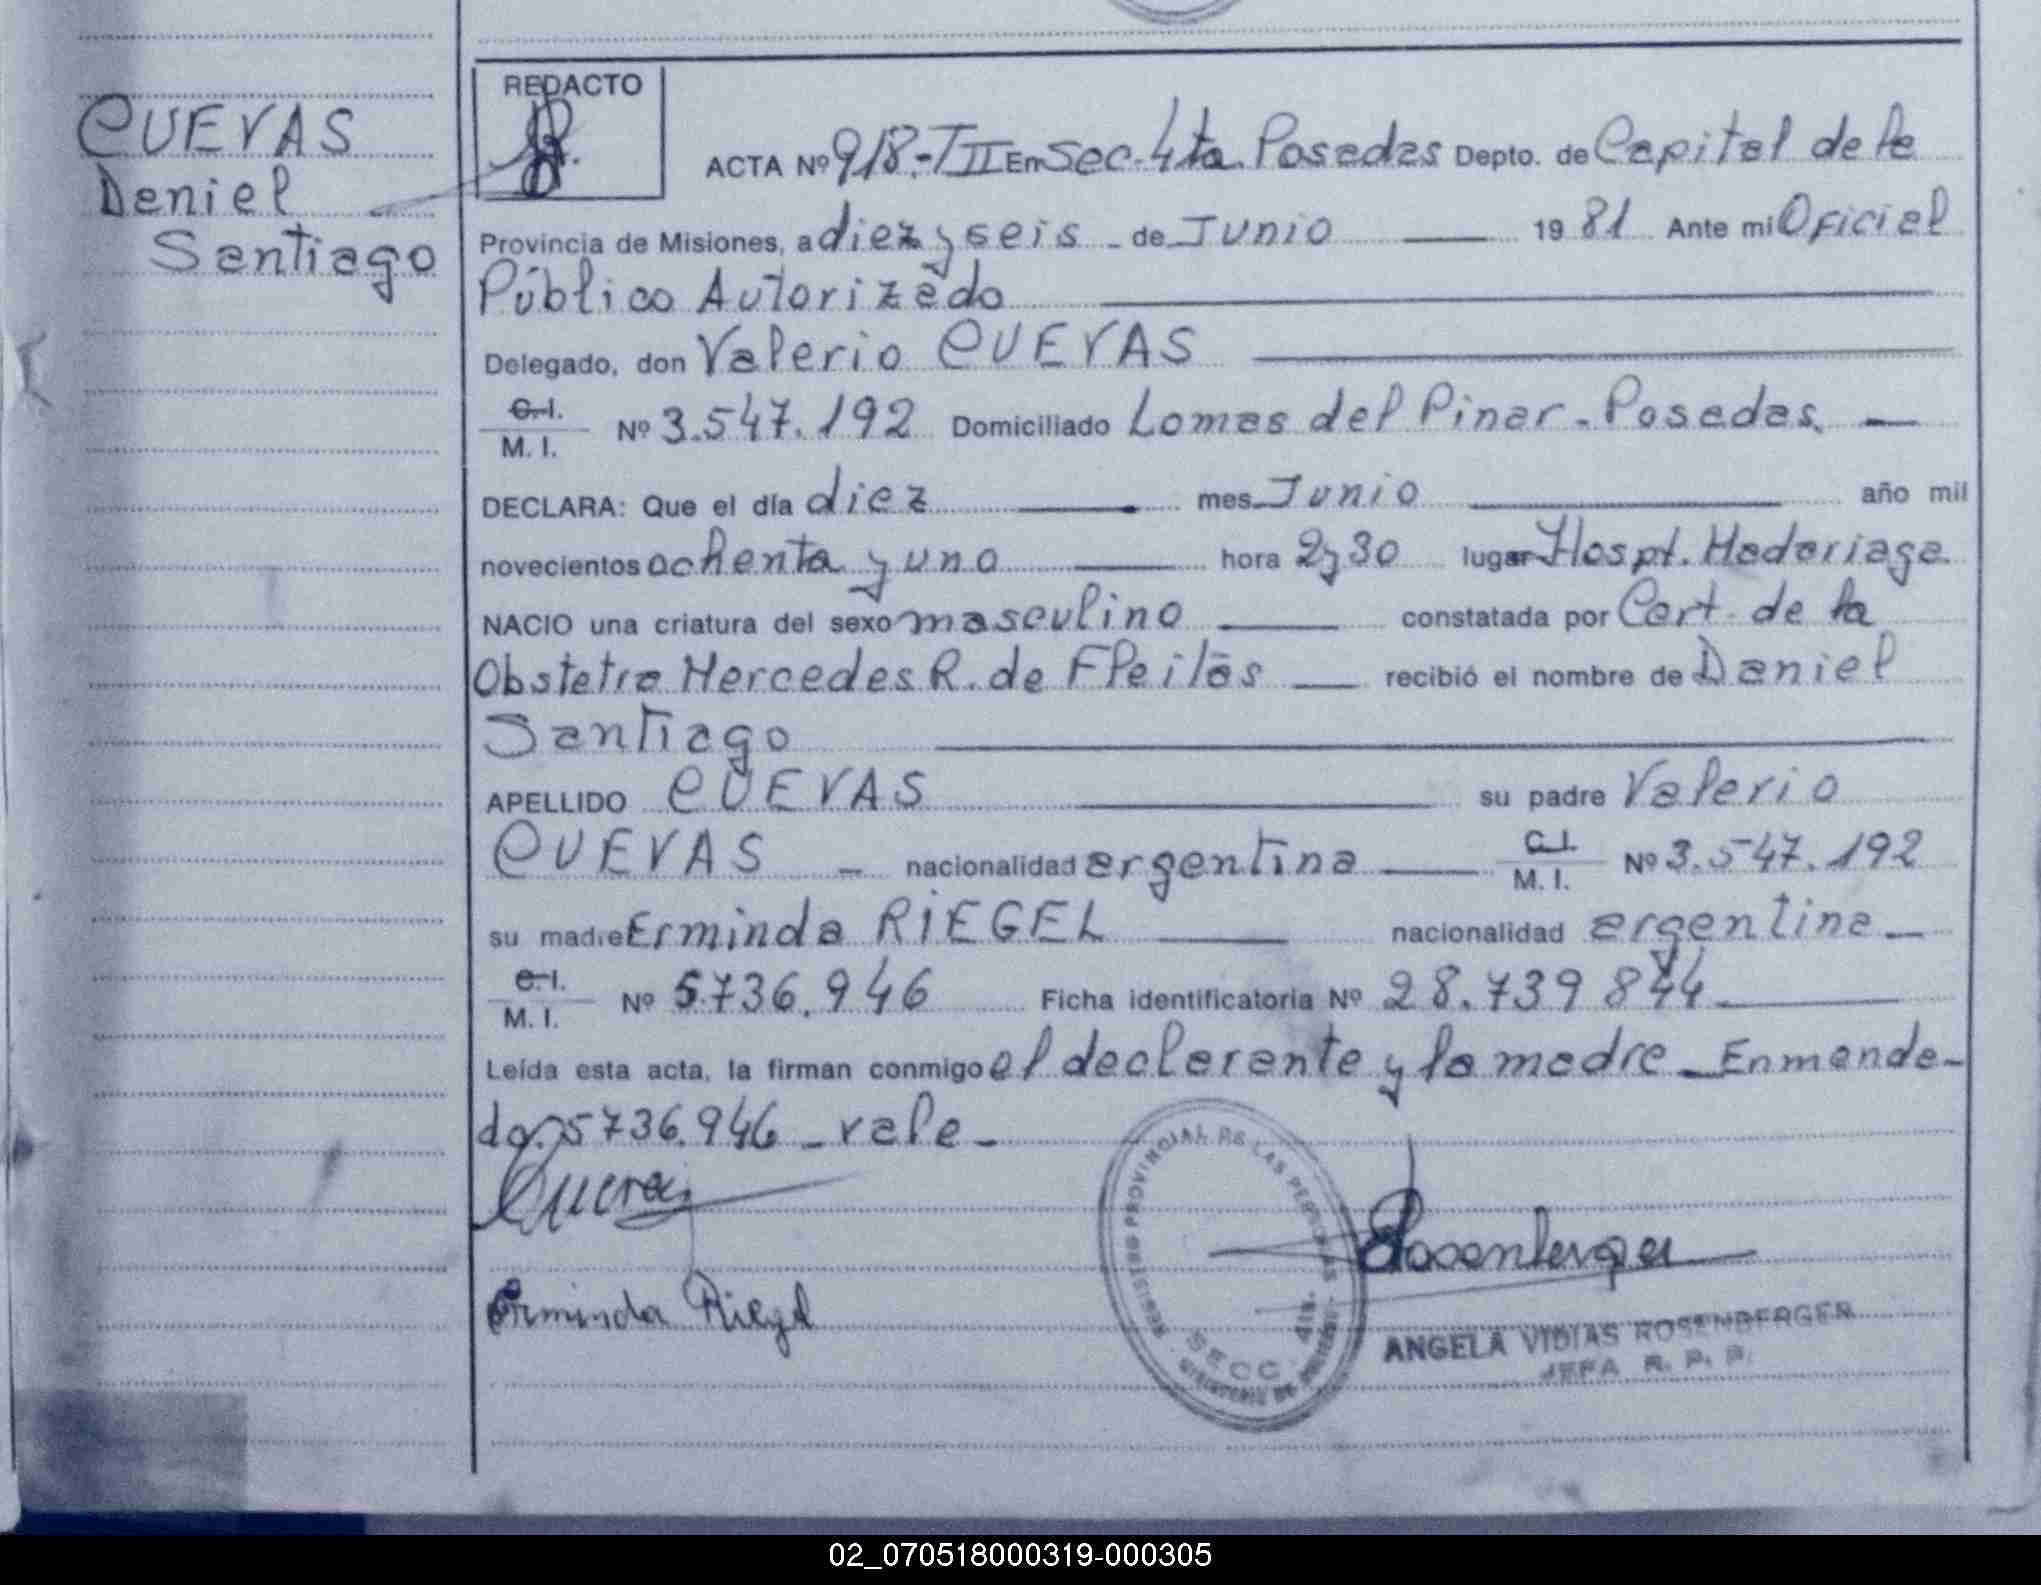 CUEVAS
Daniel
Santiago
REDACTO
ACTA Nº 918.-TII En Sec. 4ta. Posadas Depto. de Capital de la
Provincia de Misiones, a diez y seis - de Junio 19 81 Ante mi Oficial
Público Autorizado
Delegado, don Valerio CUEVAS
C.I.
M. I. Nº 3.547.192 Domiciliado Lomas del Pinar - Posadas.
DECLARA: Que el día diez mes Junio año mil
novecientos ochenta y uno hora 2y30 lugar Hospt. Madariaga
NACIO una criatura del sexo masculino constatada por Cert. de la
Obstetra Mercedes R. de recibió el nombre de Daniel
Santiago
APELLIDO CUEVAS su padre Valerio
CUEVAS - nacionalidad argentina C.I. M. I. Nº 3.547.192
su madre Erminda RIEGEL nacionalidad argentina
C.I.
M. I. Nº 5.736.946 Ficha identificatoria Nº 28.739 844
Leída esta acta, la firman conmigo el declarante y la madre - Enmenda-
do: 5736.946 - vale -
Cuevas
Rosenberger
Erminda Riegel
REGISTRO PROVINCIAL DE LAS PERSONAS
SECC. 4ta.
ANGELA VIDIAS ROSENBERGER
JEFA R. P. P.
02_070518000319-000305